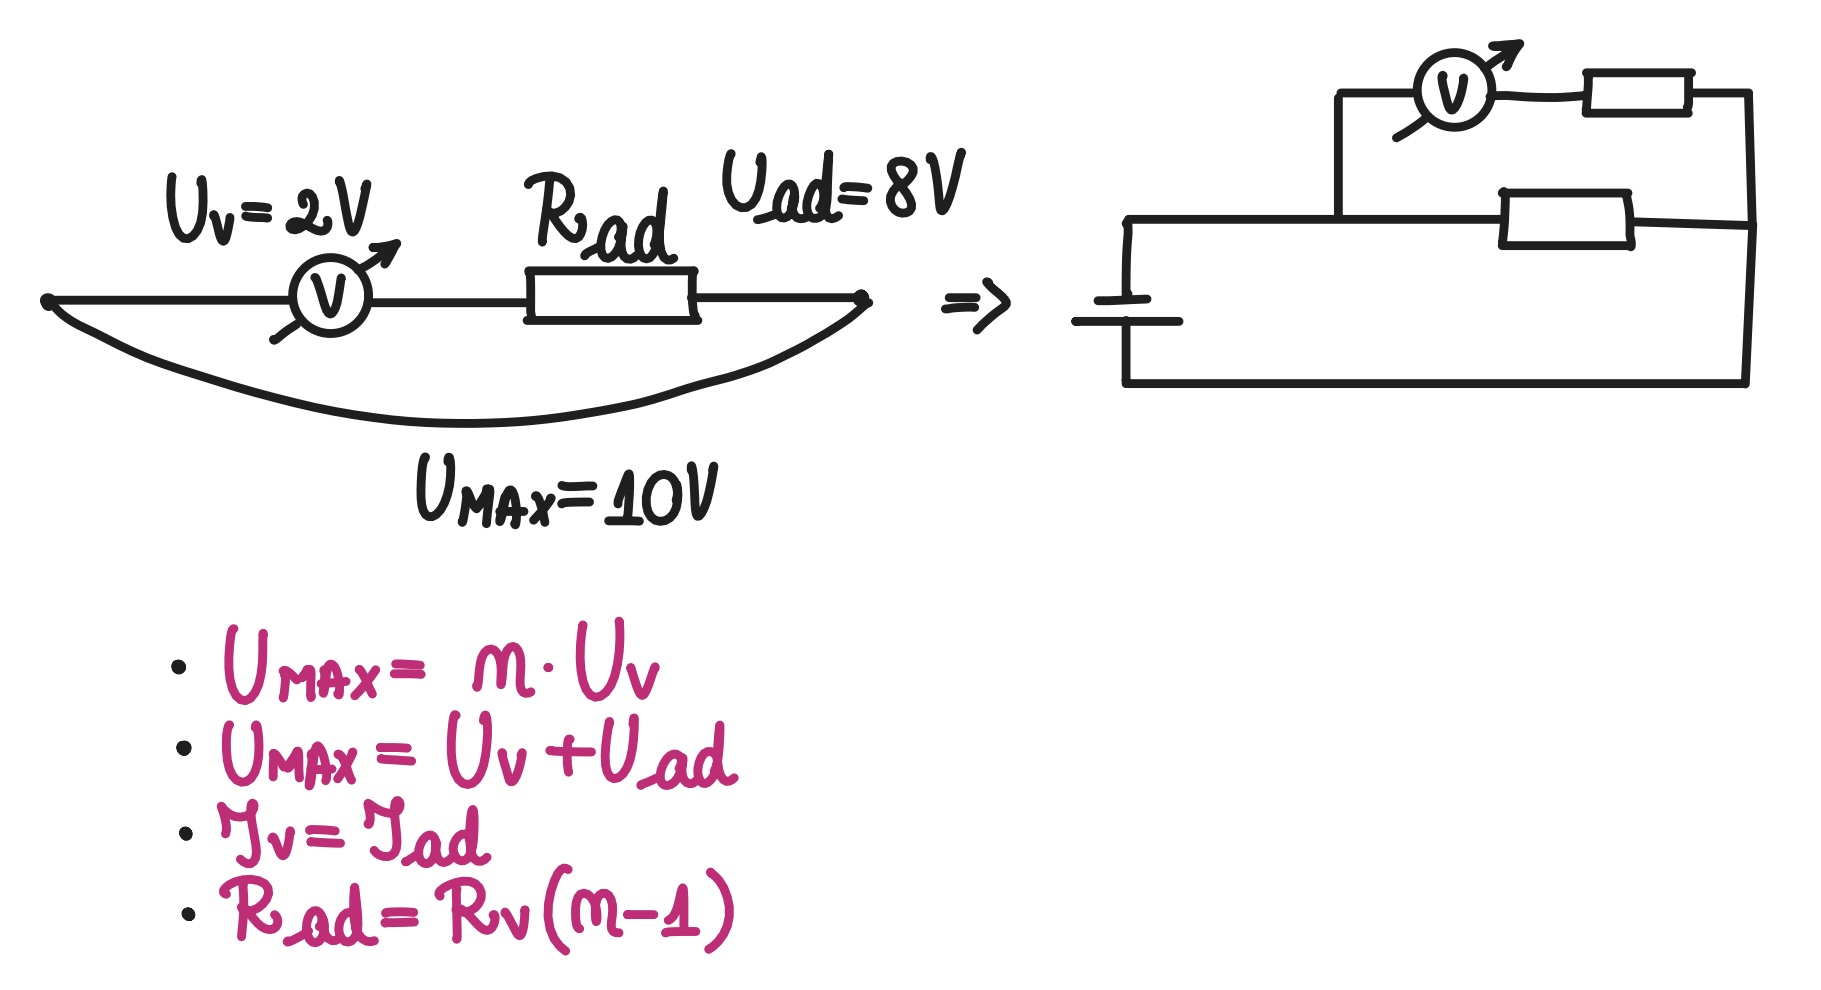 U_V = 2V
R_ad
U_ad = 8V
V
V
=>
U_MAX = 10V
• U_MAX = n · U_V
• U_MAX = U_V + U_ad
• I_V = I_ad
• R_ad = R_V (n - 1)